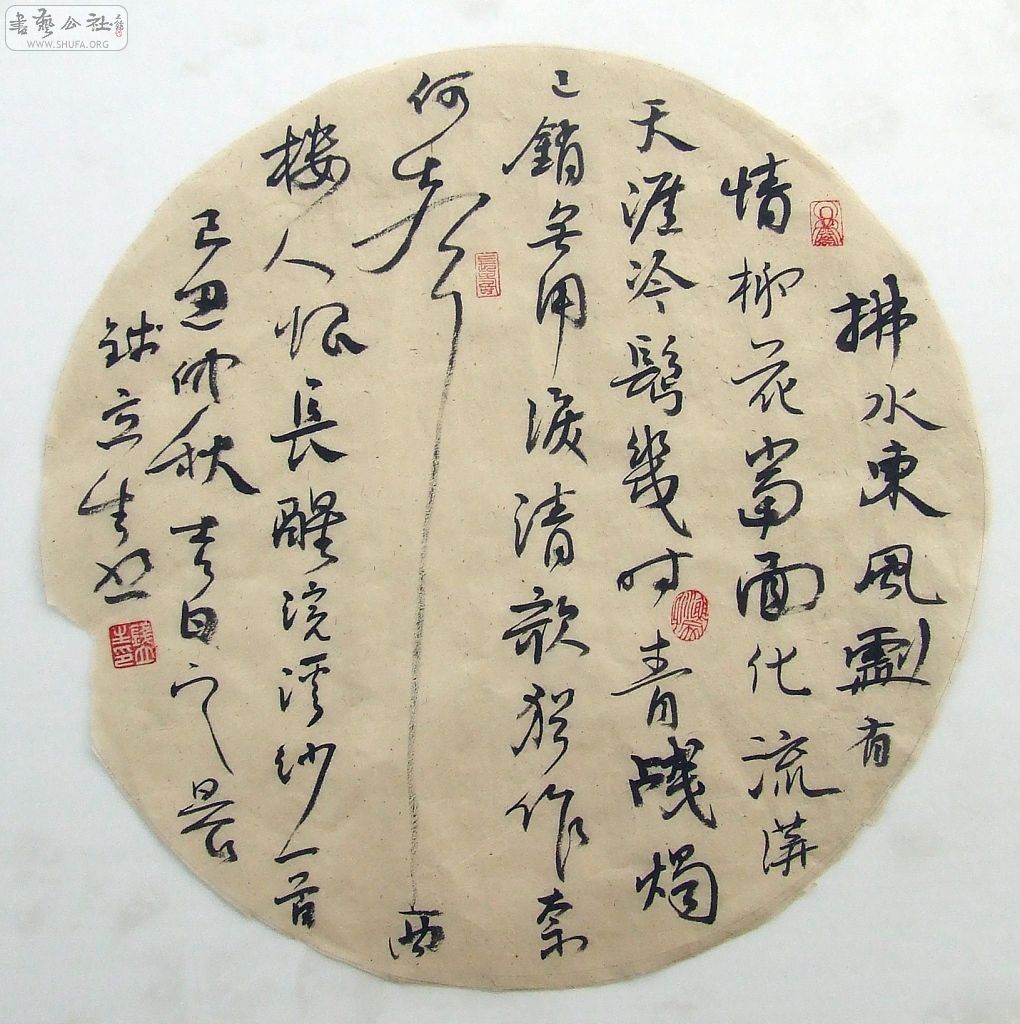 書藝公社
WWW.SHUFA.ORG
拂水東風劇有
情柳花當面化流萍
天涯冷鬢幾时青残燭
已銷無用淚清歌猶作奈
何聲西
樓人恨長醒浣溪紗一首
己丑仲秋書
錢立生